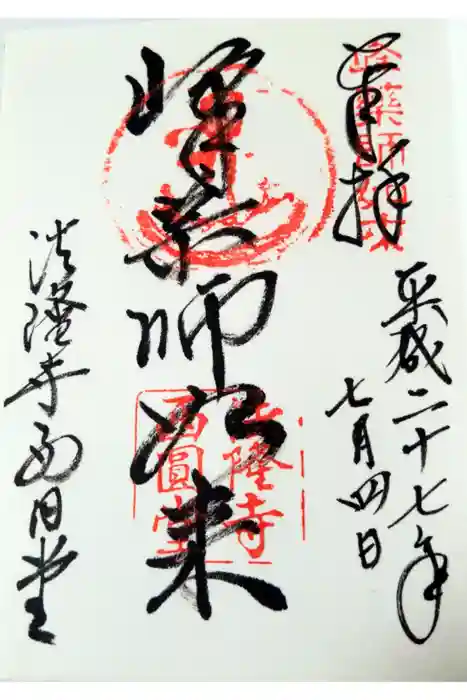 奉拝
平成二十七年
七月四日
峰薬師如来
法隆寺西円堂
峰薬師如来
法隆寺
西圓堂